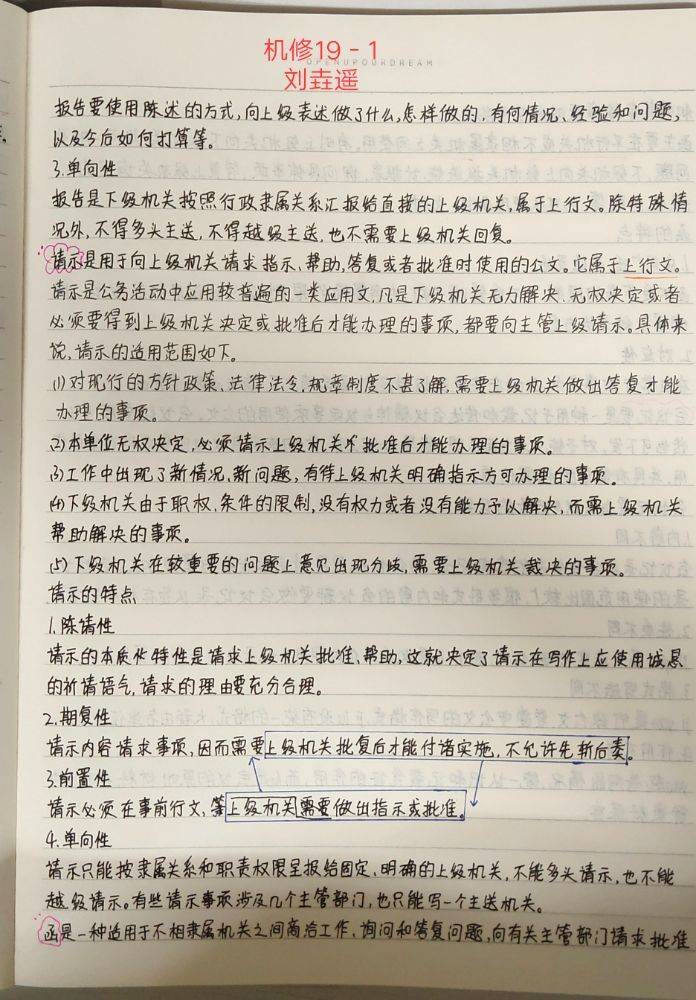 机修19-1
OPENUPOURDREAM
刘垚遥
报告要使用陈述的方式,向上级表述做了什么,怎样做的,有何情况、经验和问题,
以及今后如何打算等。
3.单向性
报告是下级机关按照行政隶属关系汇报给直接的上级机关,属于上行文。除特殊情
况外,不得多头主送,不得越级主送,也不需要上级机关回复。
请示是用于向上级机关请求指示、帮助,答复或者批准时使用的公文。它属于上行文。
请示是公务活动中应用较普遍的一类应用文,凡是下级机关无力解决、无权决定或者
必须要得到上级机关决定或批准后才能办理的事项,都要向主管上级请示。具体来
说,请示的适用范围如下。
(1)对现行的方针政策、法律法令,规章制度不甚了解,需要上级机关做出答复才能
办理的事项。
(2)本单位无权决定,必须请示上级机关批准后才能办理的事项。
(3)工作中出现了新情况、新问题,有待上级机关明确指示方可办理的事项。
(4)下级机关由于职权、条件的限制,没有权力或者没有能力予以解决,而需上级机关
帮助解决的事项。
(5)下级机关在较重要的问题上意见出现分歧,需要上级机关裁决的事项。
请示的特点
1.陈请性
请示的本质性特性是请求上级机关批准、帮助,这就决定了请示在写作上应使用诚恳
的祈请语气,请求的理由要充分合理。
2.期复性
请示内容请求事项,因而需要上级机关批复后才能付诸实施,不允许先斩后奏。
3.前置性
请示必须在事前行文,等上级机关需要做出指示或批准。
4.单向性
请示只能按隶属关系和职责权限呈报给固定、明确的上级机关,不能多头请示,也不能
越级请示。有些请示事项涉及几个主管部门,也只能写一个主送机关。
函是一种适用于不相隶属机关之间商洽工作、询问和答复问题,向有关主管部门请求批准